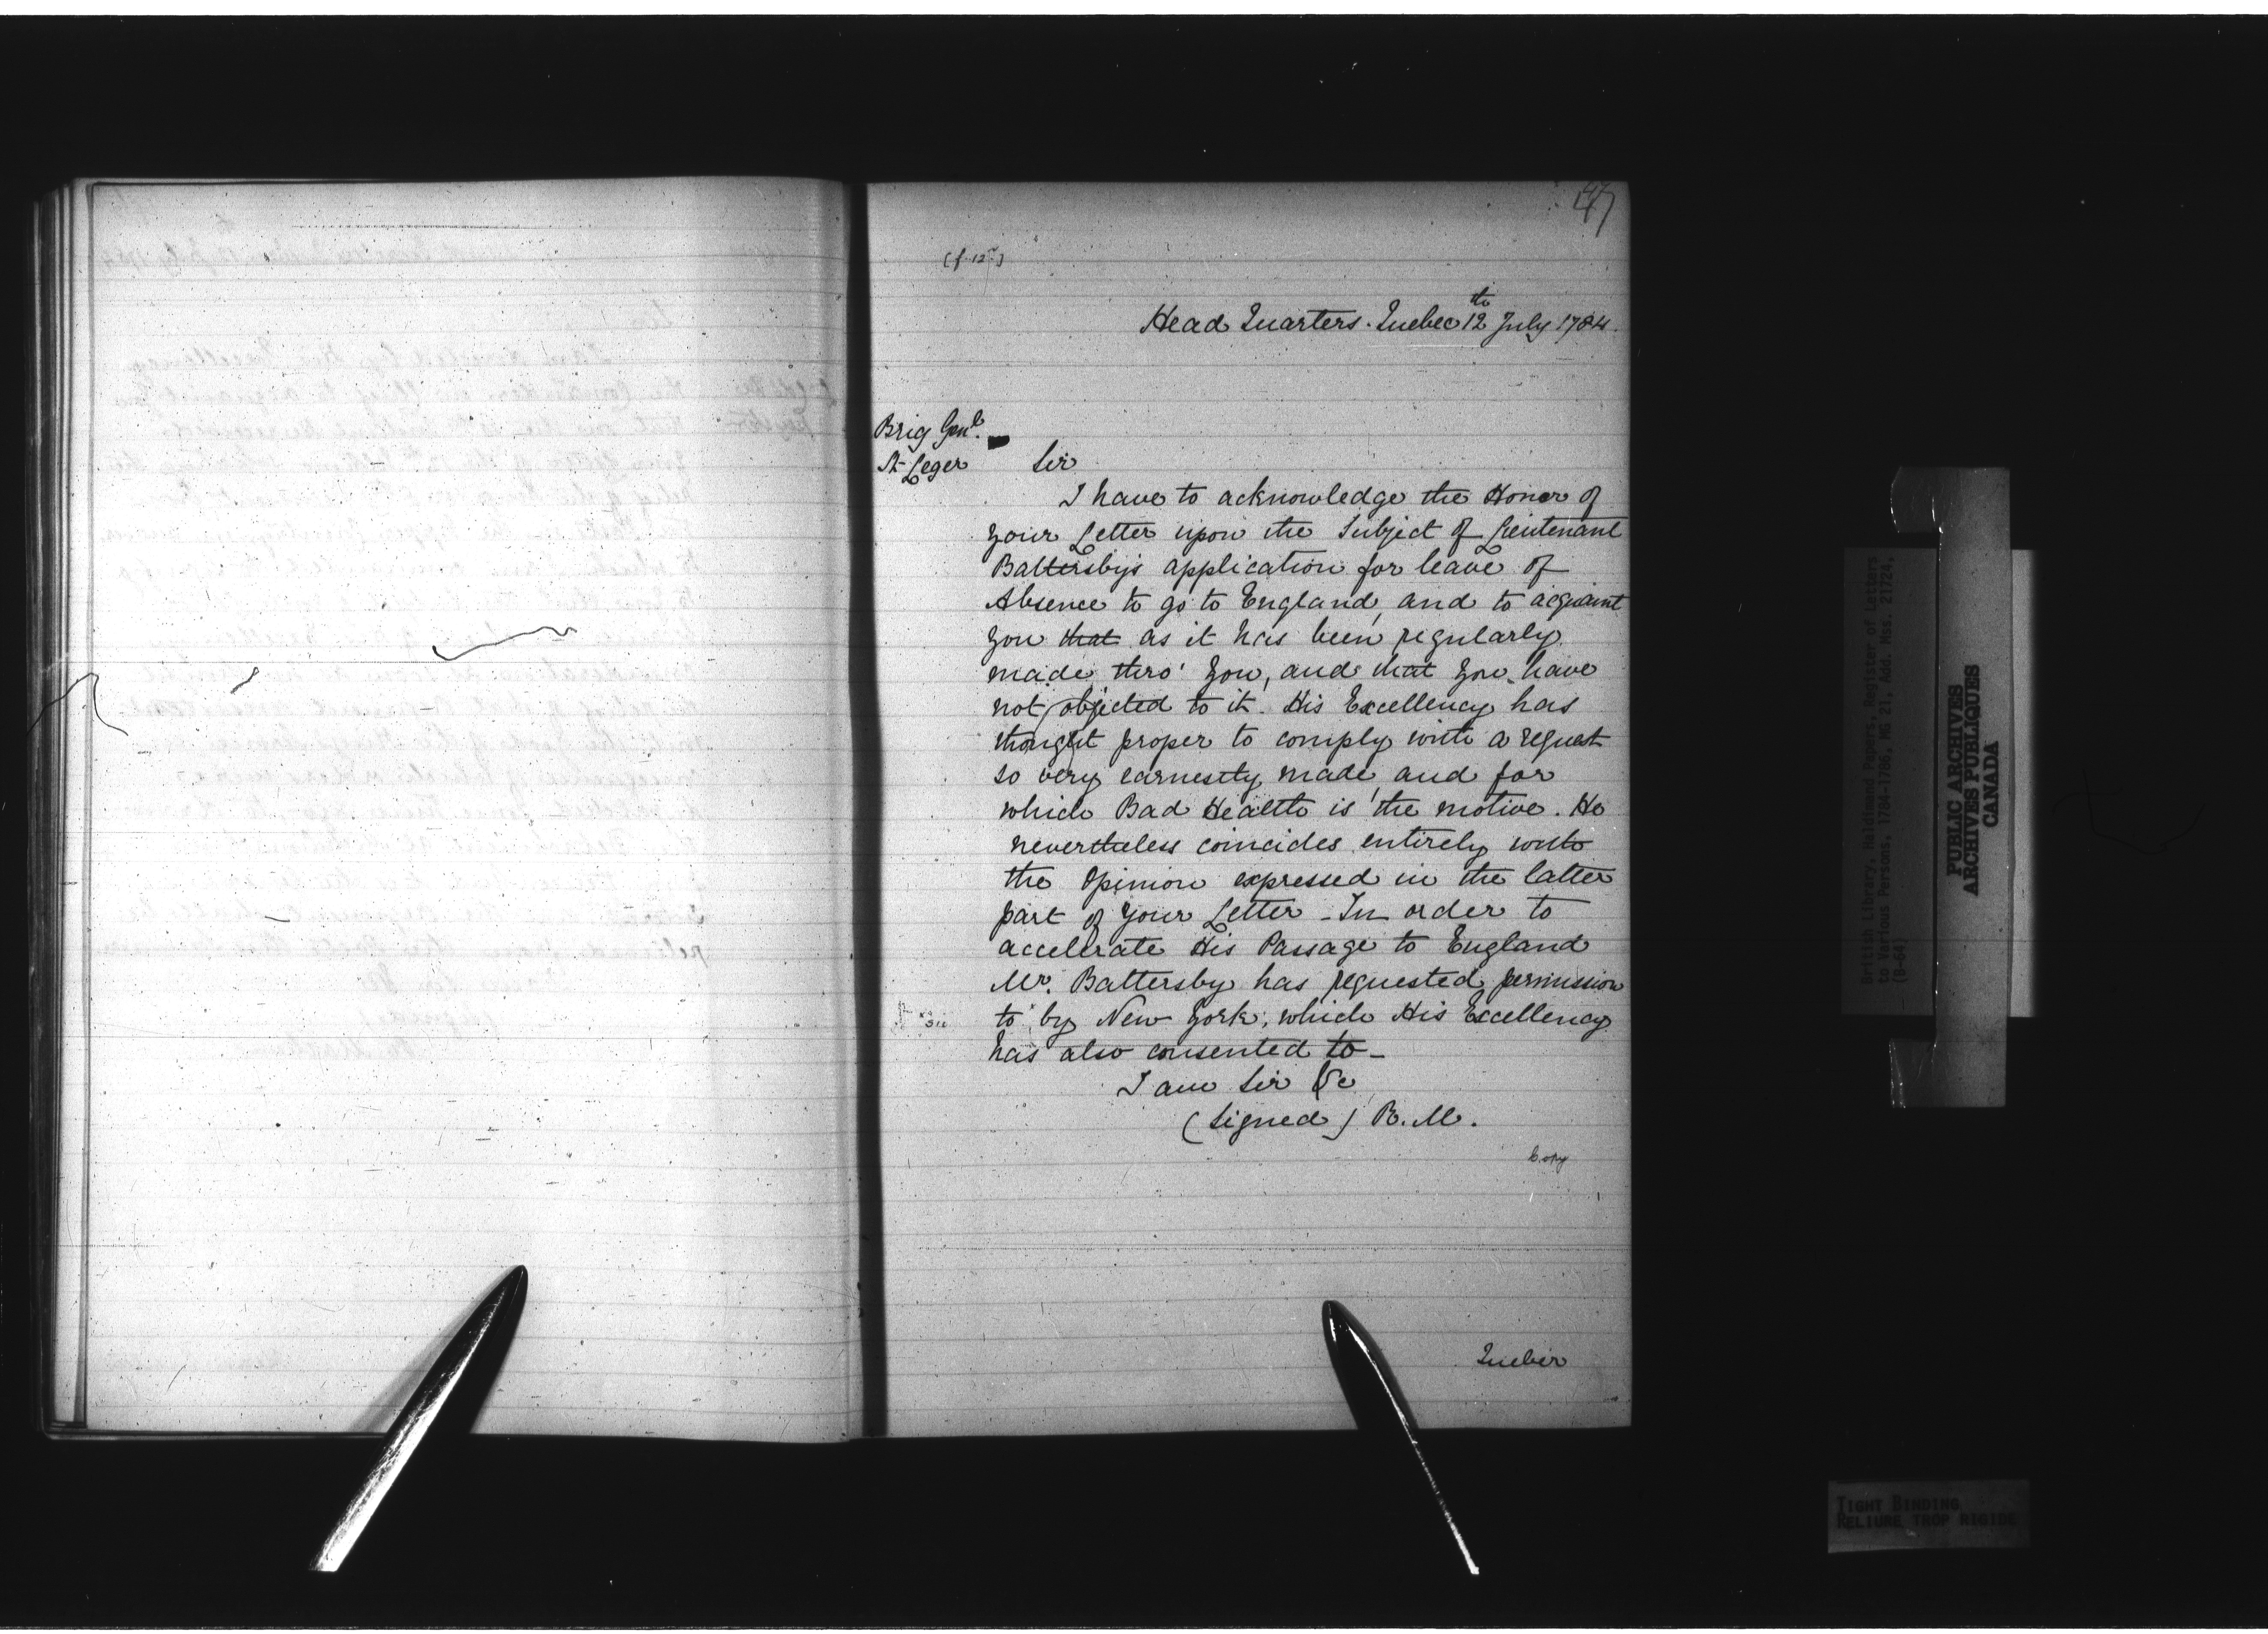 47
(f. 12)
Head Quarters. Quebec 12th July 1784.
Brig Genl.
St Leger
Sir
I have to acknowledge the Honor of
your Letter upon the Subject of Lieutenant
Battersby's application for leave of
Absence to go to England, and to acquaint
you that as it has been regularly
made thro' you, and that you have
not objected to it. His Excellency has
thought proper to comply with a request
so very earnestly made, and for
which Bad Health is the motive. He
nevertheless coincides entirely with
the Opinion expressed in the latter
part of your Letter - In order to
accelerate His Passage to England
Mr. Battersby has requested permission
to by New York, which His Excellency
has also consented to -
I am Sir &c
(Signed) R. M.
Copy
Quebec
British Library, Haldimand Papers, Register of Letters
to Various Persons, 1784-1786, MG 21, Add. Mss. 21724,
(B-64)
PUBLIC ARCHIVES
ARCHIVES PUBLIQUES
CANADA
TIGHT BINDING
RELIURE TROP RIGIDE